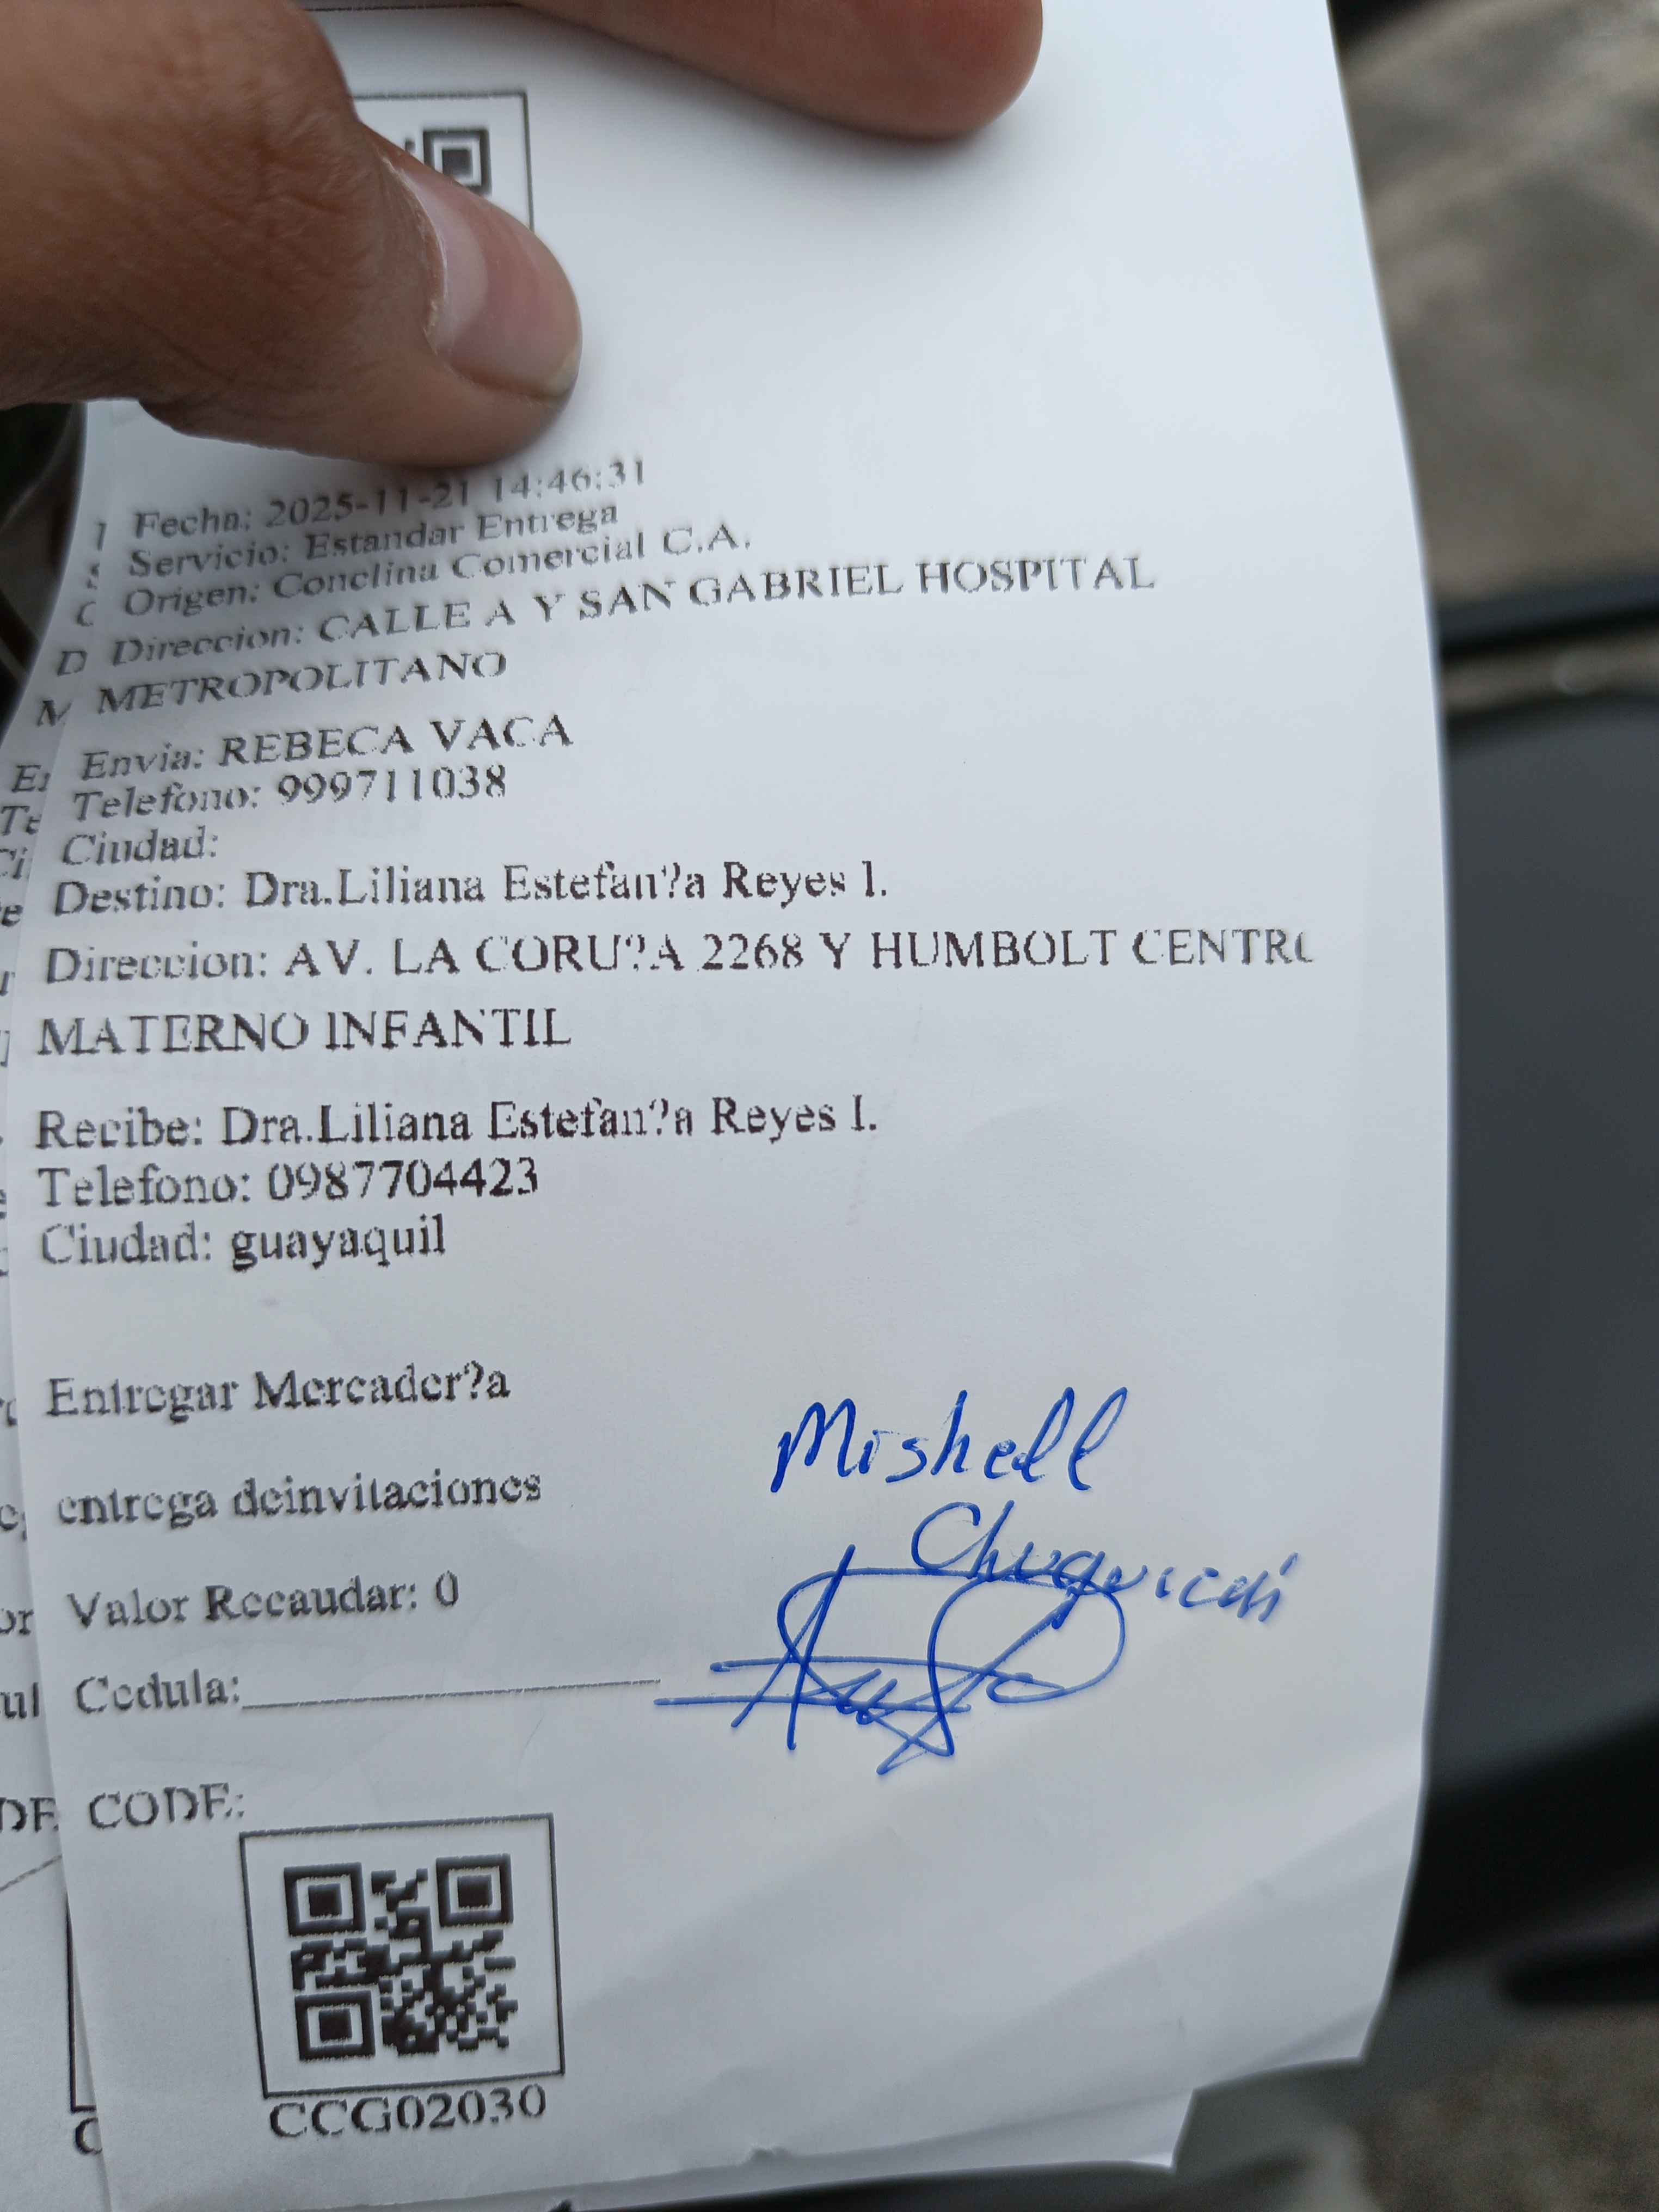 Fecha: 2025-11-21 14:46:31
Servicio: Estandar Entrega
Origen: Conclina Comercial C.A.
Direccion: CALLE A Y SAN GABRIEL HOSPITAL
METROPOLITANO
Envia: REBECA VACA
Telefono: 999711038
Ciudad:
Destino: Dra.Liliana Estefan?a Reyes I.
Direccion: AV. LA CORU?A 2268 Y HUMBOLT CENTRO
MATERNO INFANTIL
Recibe: Dra.Liliana Estefan?a Reyes I.
Telefono: 0987704423
Ciudad: guayaquil
Entregar Mercader?a
entrega deinvitaciones
Mishell
Valor Recaudar: 0
Cedula:
CODE:
CCG02030